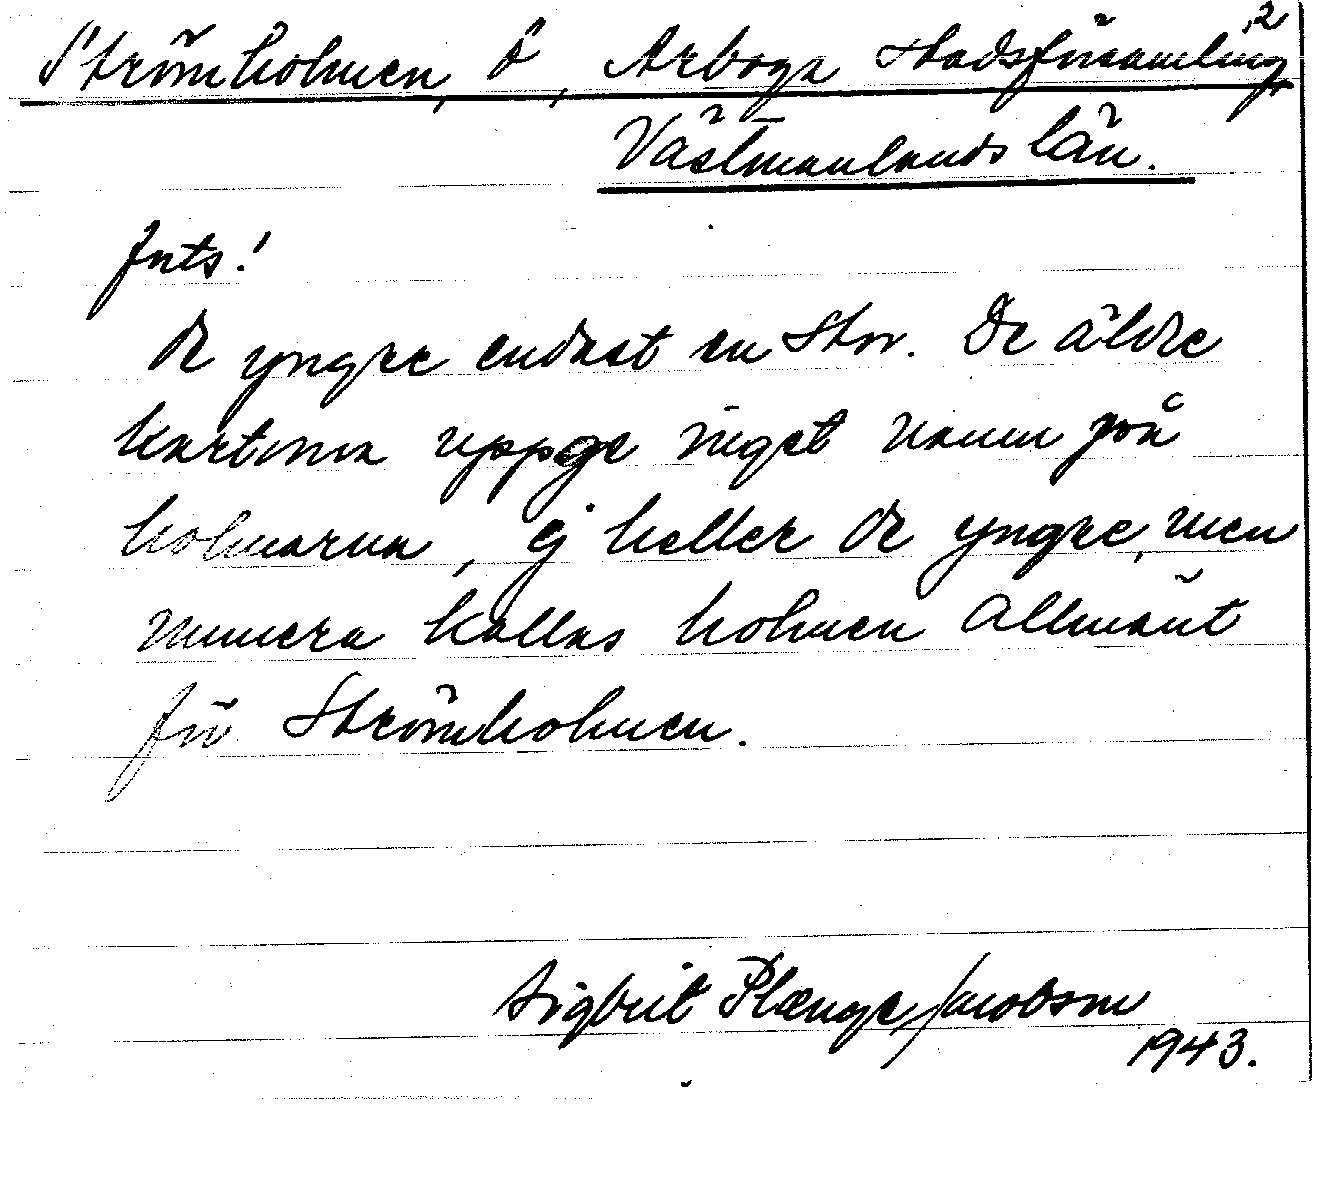 2
Strömholmen, ö, Arboga stadsförsamling,
Västmanlands län.
forts.!
de yngre endast en stor. De äldre
kartorna uppge inget namn på
holmarna, ej heller de yngre, men
numera kallas holmen allmänt
för Strömholmen.
Sigbrit Plænge Jacobson
1943.